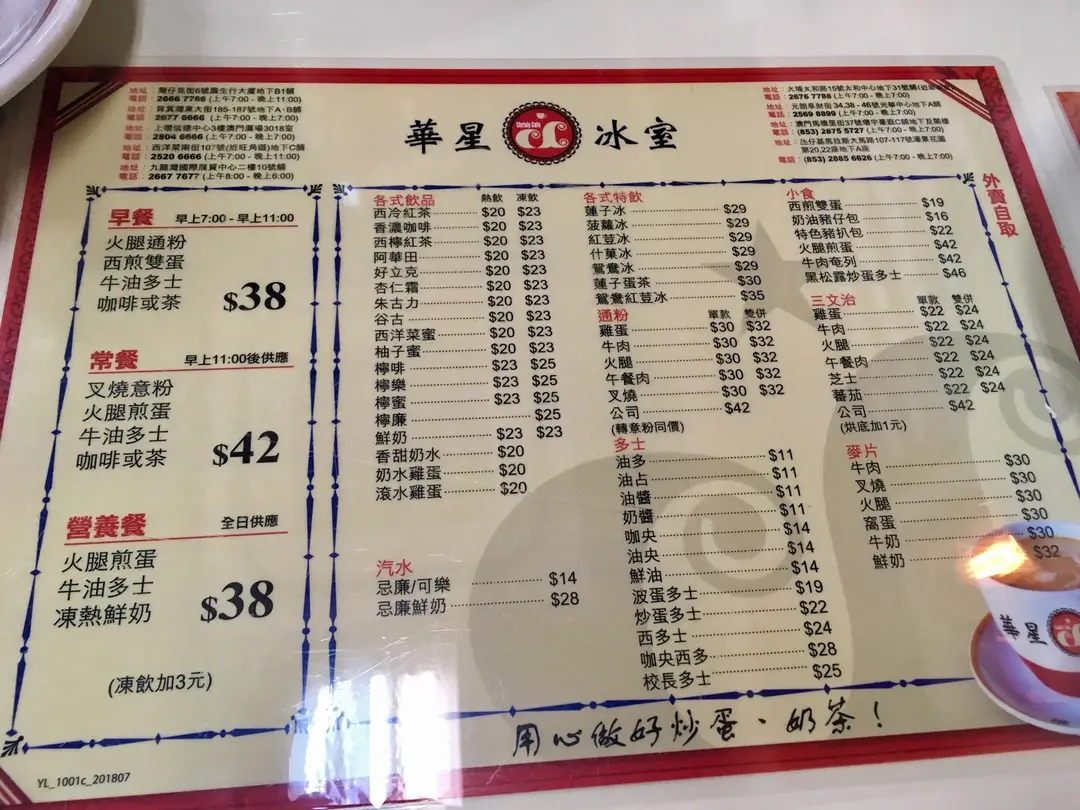 地址：灣仔克街6號廣生行大廈地下B1舖
電話：2666 7766 (上午7:00 - 晚上11:00)
地址：筲箕灣東大街185-187號地下A、B舖
電話：2677 6666 (上午7:00 - 晚上7:00)
地址：上環信德中心3樓澳門廣場301B室
電話：2804 6666 (上午7:00 - 晚上7:00)
地址：西洋菜南街107號(近旺角道)地下C舖
電話：2520 6666 (上午7:00 - 晚上11:00)
地址：九龍灣國際展貿中心二樓10號舖
電話：2667 7677 (上午8:00 - 晚上6:00)
華星
冰室
地址：大埔太和路15號太和中心地下31號舖
電話：2676 7798 (上午7:00 - 晚上7:00)
電話：2569 8899 (上午7:00 - 晚上7:00)
電話：(853) 2875 5727 (上午7:00 - 晚上7:00)
電話：(853) 2885 6626 (上午7:00 - 晚上7:00)
外賣自取
早餐 早上7:00 - 早上11:00
火腿通粉
西煎雙蛋
牛油多士
咖啡或茶 $38
常餐 早上11:00後供應
叉燒意粉
火腿煎蛋
牛油多士
咖啡或茶 $42
營養餐 全日供應
火腿煎蛋
牛油多士
凍熱鮮奶 $38
(凍飲加3元)
各式飲品 熱飲 凍飲
西冷紅茶 $20 $23
香濃咖啡 $20 $23
西檸紅茶 $20 $23
阿華田 $20 $23
好立克 $20 $23
杏仁霜 $20 $23
朱古力 $20 $23
谷古 $20 $23
西洋菜蜜 $20 $23
柚子蜜 $20 $23
檸啡 $23 $25
檸樂 $23 $25
檸蜜 $23 $25
檸廉 $25
鮮奶 $23 $23
香甜奶水 $20
奶水雞蛋 $20
滾水雞蛋 $20
汽水
忌廉/可樂 $14
忌廉鮮奶 $28
各式特飲
蓮子冰 $29
菠蘿冰 $29
紅荳冰 $29
什菓冰 $29
鴛鴦冰 $29
蓮子蛋茶 $30
鴛鴦紅荳冰 $35
通粉 單款 雙併
雞蛋 $30 $32
牛肉 $30 $32
火腿 $30 $32
午餐肉 $30 $32
叉燒 $30 $32
公司 $42
(轉意粉同價)
多士
油多 $11
油占 $11
油醬 $11
奶醬 $11
咖央 $14
油央 $14
鮮油 $14
波蛋多士 $19
炒蛋多士 $22
西多士 $24
咖央西多 $28
校長多士 $25
小食
西煎雙蛋 $19
奶油豬仔包 $16
特色豬扒包 $22
火腿煎蛋 $42
牛肉奄列 $42
黑松露炒蛋多士 $46
三文治 單款 雙併
雞蛋 $22 $24
牛肉 $22 $24
火腿 $22 $24
午餐肉 $22 $24
芝士 $22 $24
蕃茄 $22 $24
公司 $42
(烘底加1元)
麥片
牛肉 $30
叉燒 $30
火腿 $30
窩蛋 $30
牛奶 $30
鮮奶 $32
華星
用心做好炒蛋、奶茶！
YL_1001c_201807